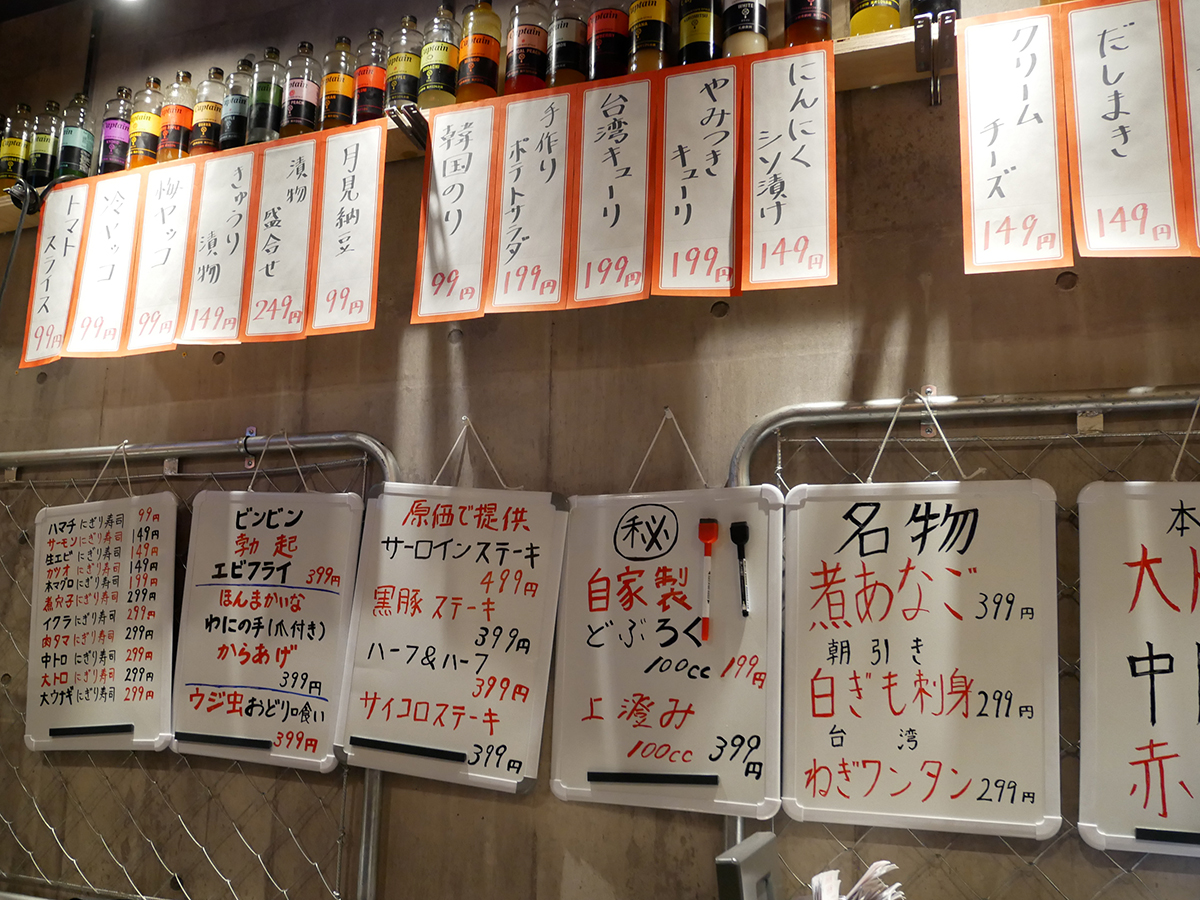 トマト
スライス
99円
冷ヤッコ
99円
梅ヤッコ
99円
きゅうり
漬物
149円
漬物
盛合せ
249円
月見納豆
99円
韓国のり
99円
手作り
ポテトサラダ
199円
台湾キューリ
199円
やみつき
キューリ
199円
にんにく
シソ漬け
149円
クリーム
チーズ
149円
だしまき
149円
ハマチにぎり寿司 99円
サーモンにぎり寿司 149円
生エビにぎり寿司 149円
カツオにぎり寿司 149円
本マグロにぎり寿司 199円
煮穴子にぎり寿司 299円
イクラにぎり寿司 299円
肉タマにぎり寿司 299円
中トロにぎり寿司 299円
大トロにぎり寿司 299円
大ウナギにぎり寿司 299円
ビンビン
勃起
エビフライ 399円
ほんまかいな
わにの手(爪付き)
からあげ
399円
ウジ虫おどり喰い
399円
原価で提供
サーロインステーキ
499円
黒豚ステーキ
399円
ハーフ&ハーフ
399円
サイコロステーキ
399円
秘
自家製
どぶろく
100cc 199円
上澄み
100cc 399円
名物
煮あなご 399円
朝引き
白ぎも刺身 299円
台湾
ねぎワンタン 299円
本
大ト
中
赤